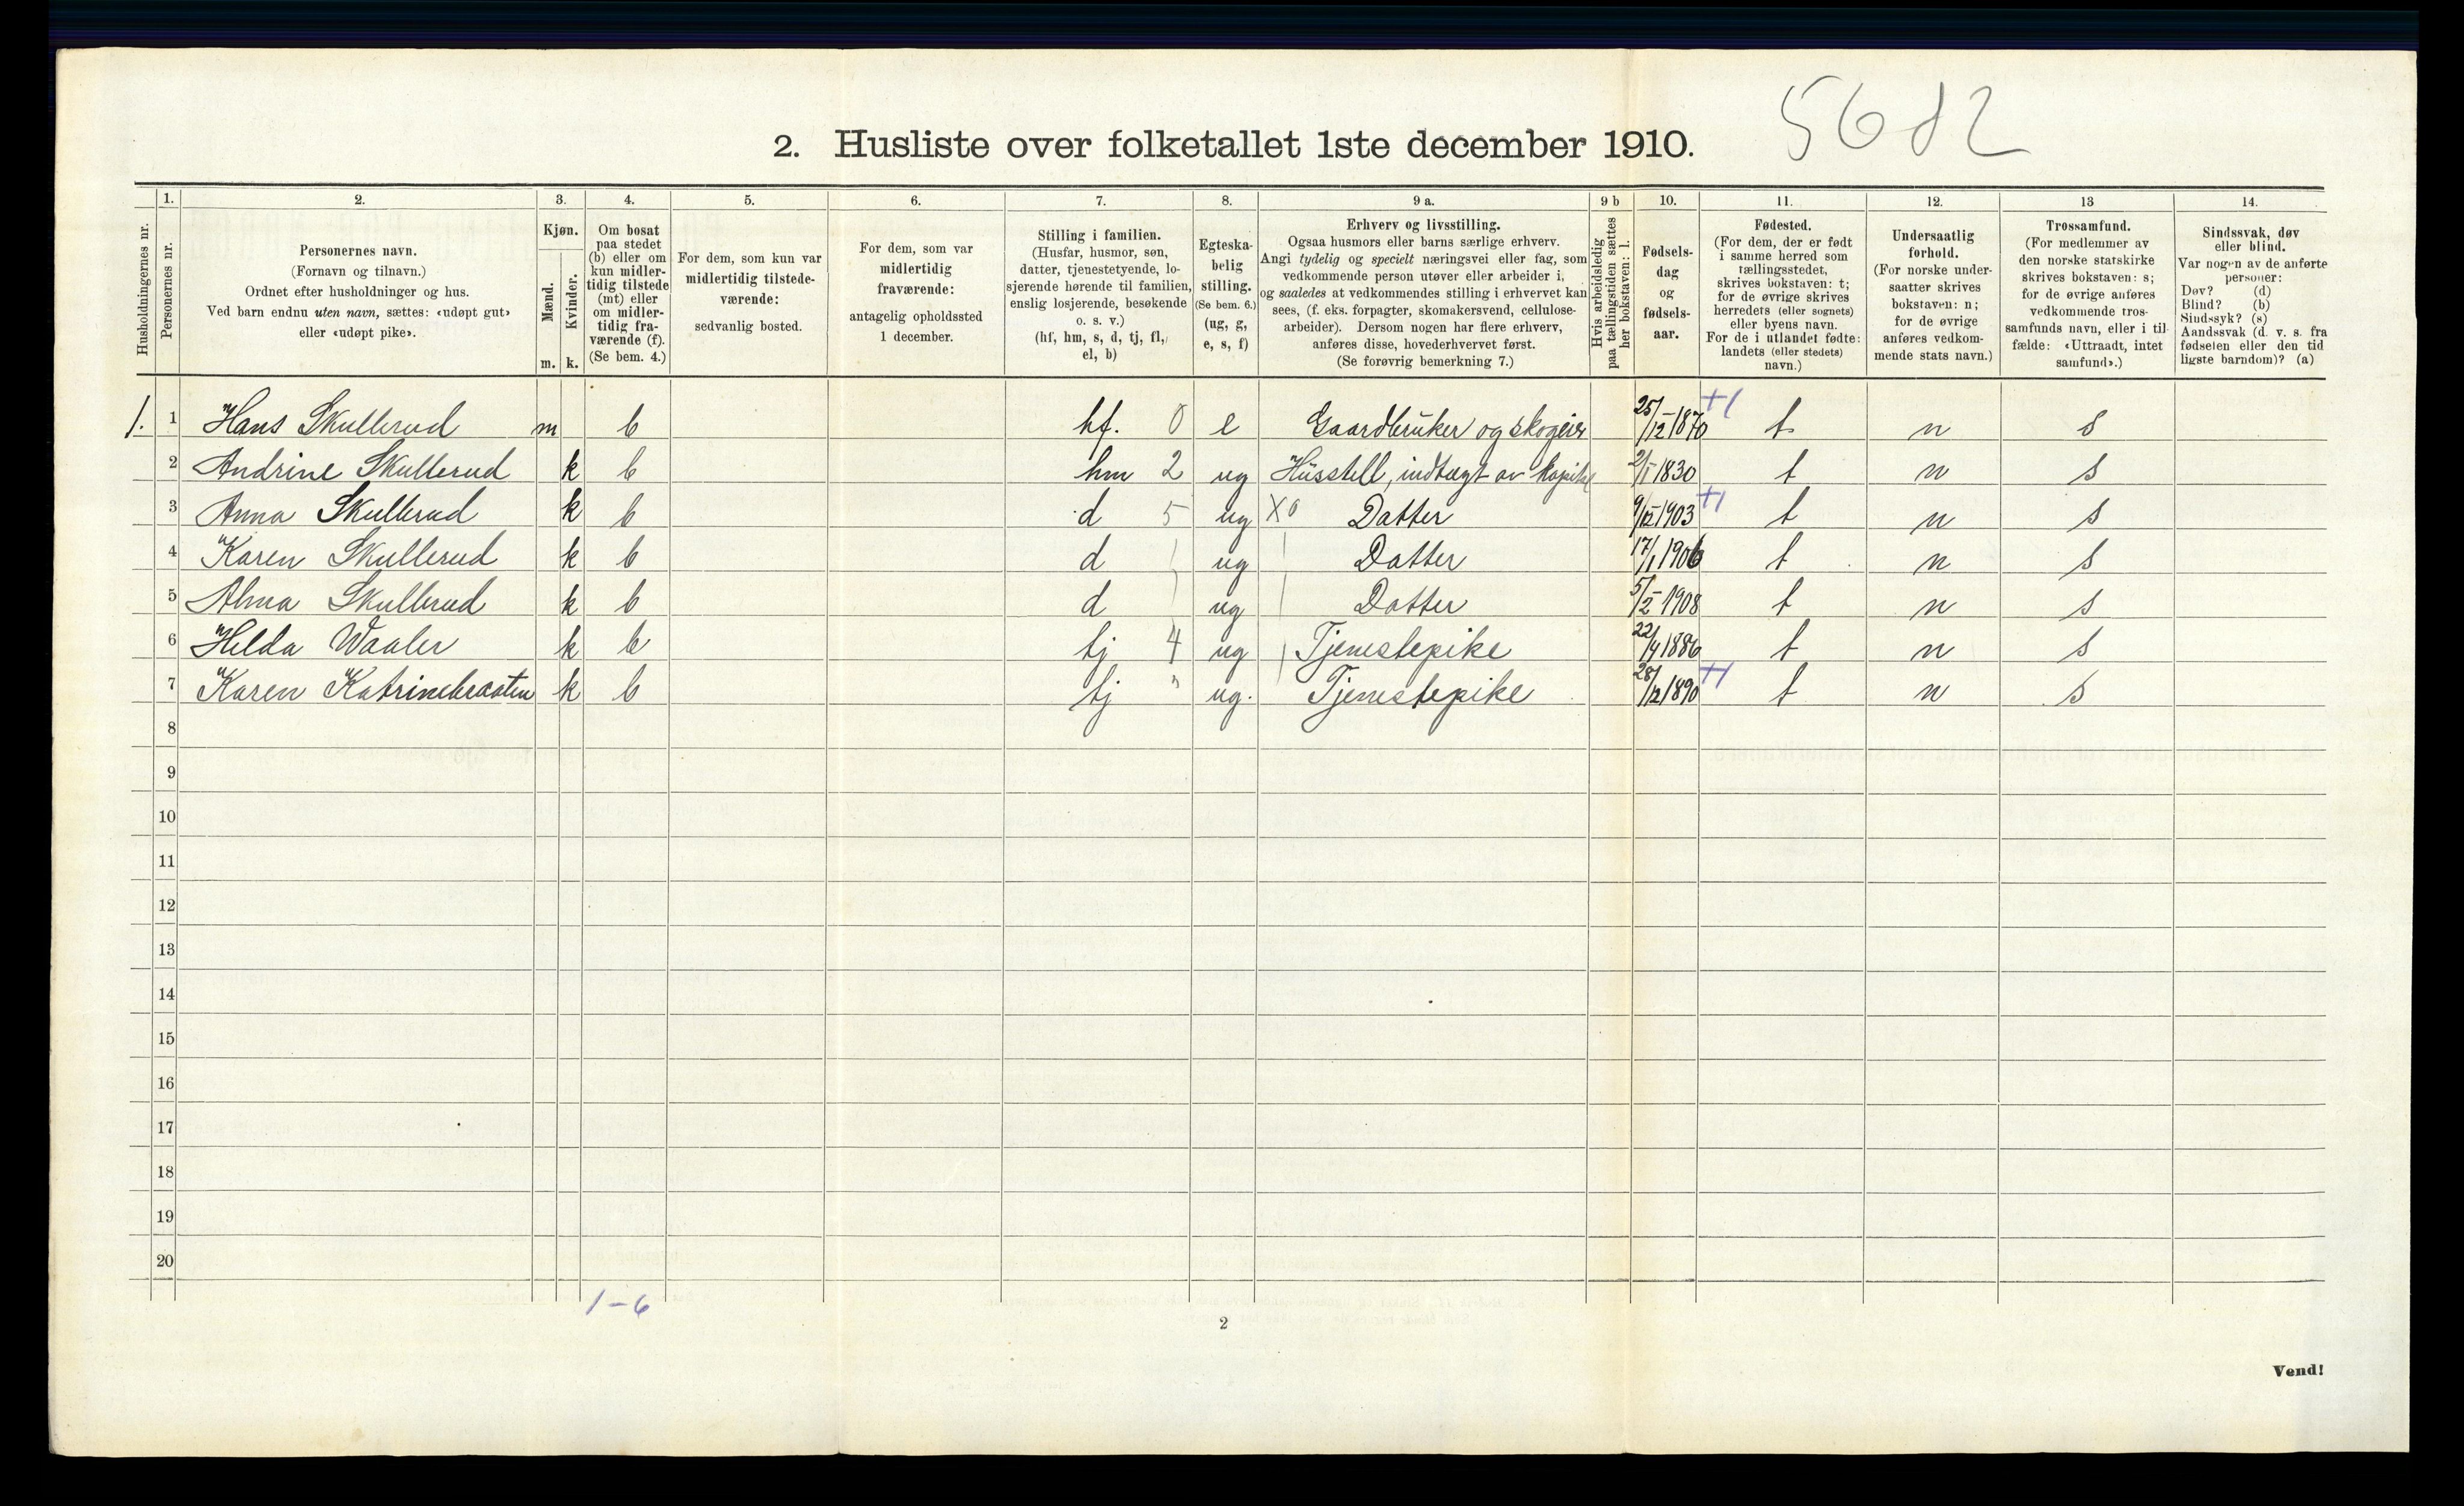 5682
2. Husliste over folketallet 1ste december 1910.
Husholdningernes nr.
1.
Personernes nr.
2.
Personernes navn.
(Fornavn og tilnavn.)
Ordnet efter husholdninger og hus.
Ved barn endnu uten navn, sættes: «udøpt gut»
eller «udøpt pike».
3.
Kjøn.
Mænd.
Kvinder.
m. k.
4.
Om bosat
paa stedet
(b) eller om
kun midler-
tidig tilstede
(mt) eller
om midler-
tidig fra-
værende (f).
(Se bem. 4.)
5.
For dem, som kun var
midlertidig tilstede-
værende:
sedvanlig bosted.
6.
For dem, som var
midlertidig
fraværende:
antagelig opholdssted
1 december.
7.
Stilling i familien.
(Husfar, husmor, søn,
datter, tjenestetyende, lo-
sjerende hørende til familien,
enslig losjerende, besøkende
o. s. v.)
(hf, hm, s, d, tj, fl,
el, b)
8.
Egteska-
belig
stilling.
(Se bem. 6.)
(ug, g,
e, s, f)
9 a.
Erhverv og livsstilling.
Ogsaa husmors eller barns særlige erhverv.
Angi tydelig og specielt næringsvei eller fag, som
vedkommende person utøver eller arbeider i,
og saaledes at vedkommendes stilling i erhvervet kan
sees, (f. eks. forpagter, skomakersvend, cellulose-
arbeider). Dersom nogen har flere erhverv,
anføres disse, hovederhvervet først.
(Se forøvrig bemerkning 7.)
9 b
Hvis arbeidsledig
paa tællingstiden sættes
her bokstaven: l.
10.
Fødsels-
dag
og
fødsels-
aar.
11.
Fødested.
(For dem, der er født
i samme herred som
tællingsstedet,
skrives bokstaven: t;
for de øvrige skrives
herredets (eller sognets)
eller byens navn.
For de i utlandet fødte:
landets (eller stedets)
navn.)
12.
Undersaatlig
forhold.
(For norske under-
saatter skrives
bokstaven: n;
for de øvrige
anføres vedkom-
mende stats navn.)
13
Trossamfund.
(For medlemmer av
den norske statskirke
skrives bokstaven: s;
for de øvrige anføres
vedkommende tros-
samfunds navn, eller i til-
fælde: «Uttraadt, intet
samfund».)
14.
Sindssvak, døv
eller blind.
Var nogen av de anførte
personer:
Døv? (d)
Blind? (b)
Sindssyk? (s)
Aandssvak (d. v. s. fra
fødselen eller den tid
ligste barndom)? (a)
1. 1 Hans Skullerud m b hf. 0 e Gaardbruker og skogeier 25/12 1870 +1 t n s
2 Andrine Skullerud k b hm 2 ug Husstell, indtægt av kapital 2/1 1830 t n s
3 Anna Skullerud k b d 5 ug X0 Datter 9/12 1903 +1 t n s
4 Karen Skullerud k b d ug Datter 17/1 1906 t n s
5 Alma Skullerud k b d ug Datter 5/2 1908 t n s
6 Helda Waaler k b tj 4 ug Tjenestepike 22/4 1886 t n s
7 Karen Katrinebraaten k b tj " ug. Tjenestepike 28/12 1890 +1 t n s
8
9
10
11
12
13
14
15
16
17
18
19
20
1-6
2
Vend!